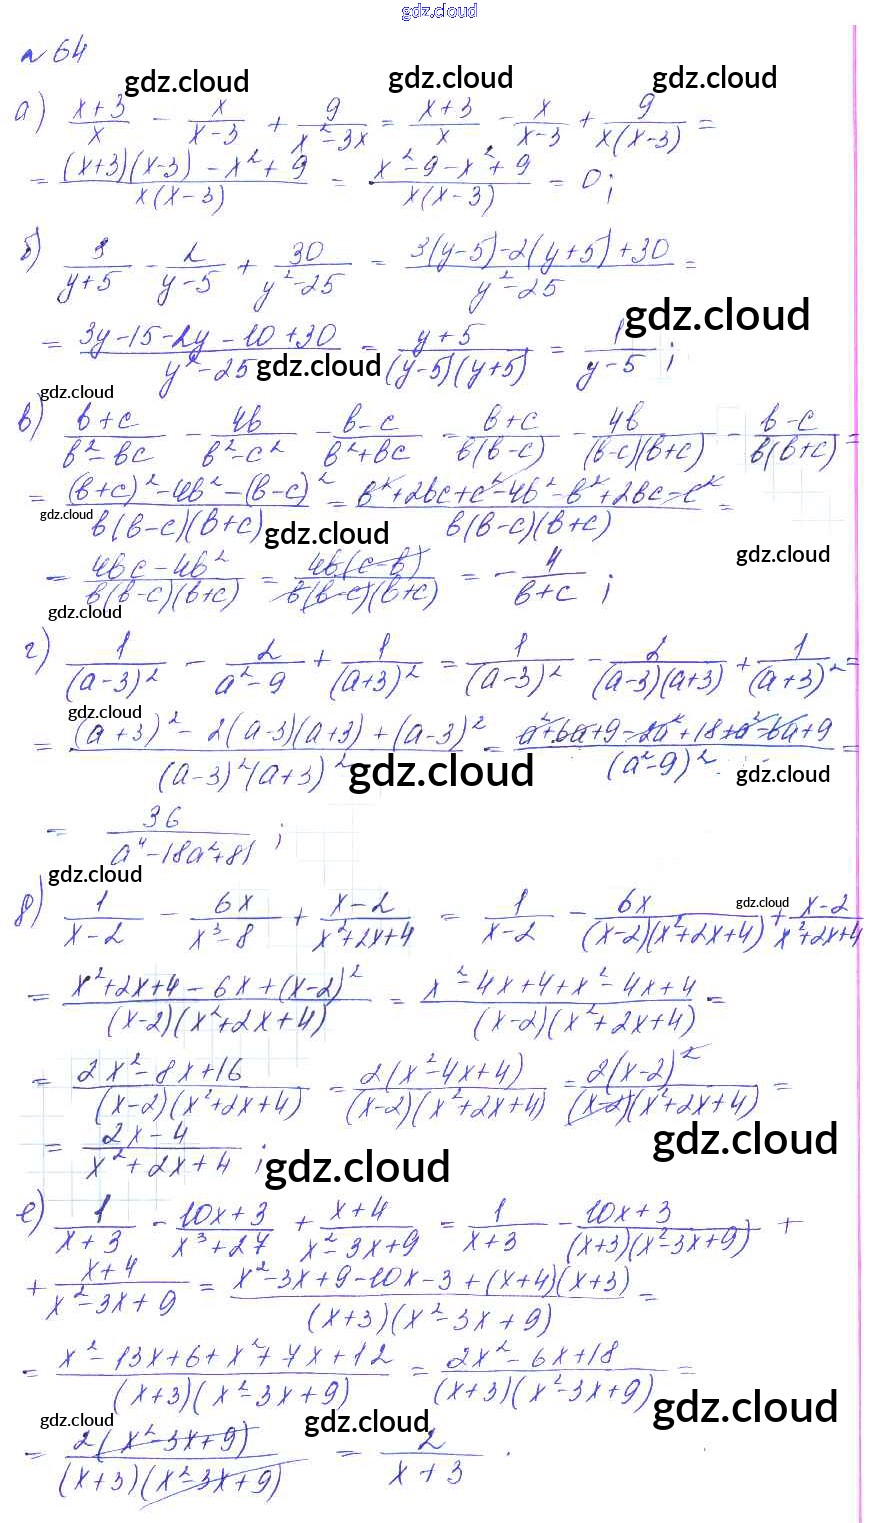 gdz.cloud
№ 64
gdz.cloud gdz.cloud gdz.cloud
а) (x+3)/x − x/(x−3) + 9/(x²−3x) = (x+3)/x − x/(x−3) + 9/(x(x−3)) =
= ((x+3)(x−3) − x² + 9)/(x(x−3)) = (x²−9−x²+9)/(x(x−3)) = 0;
б) 3/(y+5) − 2/(y−5) + 30/(y²−25) = (3(y−5)−2(y+5)+30)/(y²−25) =
gdz.cloud
= (3y−15−2y−10+30)/(y²−25) = (y+5)/((y−5)(y+5)) = 1/(y−5);
gdz.cloud
gdz.cloud
в) (b+c)/(b²−bc) − 4b/(b²−c²) − (b−c)/(b²+bc) = (b+c)/(b(b−c)) − 4b/((b−c)(b+c)) − (b−c)/(b(b+c)) =
= ((b+c)²−4b²−(b−c)²)/(b(b−c)(b+c)) = (b²+2bc+c²−4b²−b²+2bc−c²)/(b(b−c)(b+c)) =
gdz.cloud gdz.cloud
gdz.cloud
= (4bc−4b²)/(b(b−c)(b+c)) = (4b(c−b))/(b(b−c)(b+c)) = −4/(b+c);
gdz.cloud
г) 1/(a−3)² − 2/(a²−9) + 1/(a+3)² = 1/(a−3)² − 2/((a−3)(a+3)) + 1/(a+3)² =
gdz.cloud
= ((a+3)²−2(a−3)(a+3)+(a−3)²)/((a−3)²(a+3)²) = (a²+6a+9−2a²+18+a²−6a+9)/(a²−9)² =
gdz.cloud gdz.cloud
= 36/(a⁴−18a²+81);
gdz.cloud
д) 1/(x−2) − 6x/(x³−8) + (x−2)/(x²+2x+4) = 1/(x−2) − 6x/((x−2)(x²+2x+4)) + (x−2)/(x²+2x+4)
gdz.cloud
= (x²+2x+4−6x+(x−2)²)/((x−2)(x²+2x+4)) = (x²−4x+4+x²−4x+4)/((x−2)(x²+2x+4)) =
= (2x²−8x+16)/((x−2)(x²+2x+4)) = (2(x²−4x+4))/((x−2)(x²+2x+4)) = (2(x−2)²)/((x−2)(x²+2x+4)) =
gdz.cloud
= (2x−4)/(x²+2x+4);
gdz.cloud
е) 1/(x+3) − (10x+3)/(x³+27) + (x+4)/(x²−3x+9) = 1/(x+3) − (10x+3)/((x+3)(x²−3x+9)) +
+ (x+4)/(x²−3x+9) = (x²−3x+9−10x−3+(x+4)(x+3))/((x+3)(x²−3x+9)) =
= (x²−13x+6+x²+7x+12)/((x+3)(x²−3x+9)) = (2x²−6x+18)/((x+3)(x²−3x+9)) =
gdz.cloud gdz.cloud gdz.cloud
= (2(x²−3x+9))/((x+3)(x²−3x+9)) = 2/(x+3).